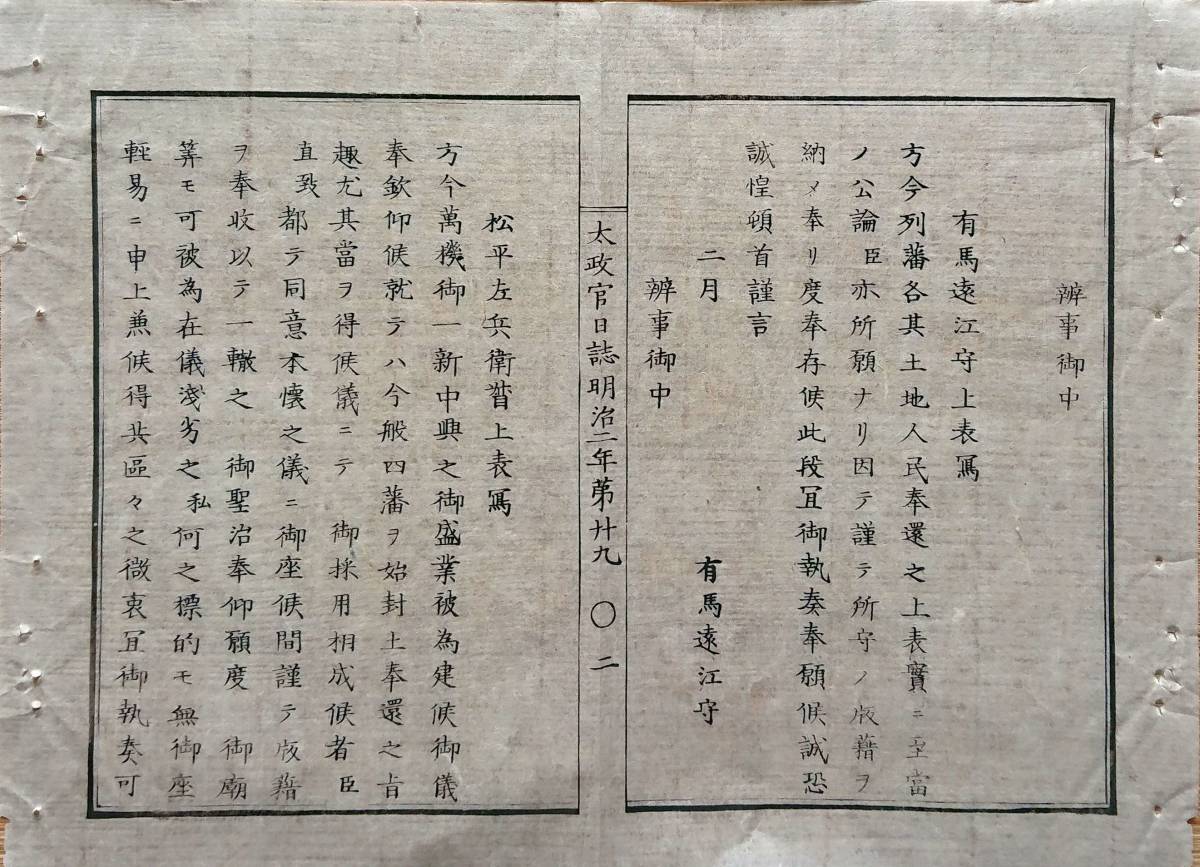 辨事御中
有馬遠江守上表寫
方今列藩各其土地人民奉還之上表實ニ至當
ノ公論臣亦所願ナリ因テ謹テ所守ノ版籍ヲ
納メ奉リ度奉存候此段冝御執奏奉願候誠恐
誠惶頓首謹言
二月
有馬遠江守
辨事御中
太政官日誌明治二年第廾九 〇 二
松平左兵衛督上表寫
方今萬機御一新中興之御盛業被為建候御儀
奉欽仰候就テハ今般四藩ヲ始封土奉還之旨
趣尤其當ヲ得候儀ニテ 御採用相成候者臣
直致都テ同意本懐之儀ニ御座候間謹テ版籍
ヲ奉收以テ一轍之 御聖治奉仰願度 御廟
筭モ可被為在儀淺劣之私何之標的モ無御座
輕易ニ申上兼候得共區々之微衷冝御執奏可